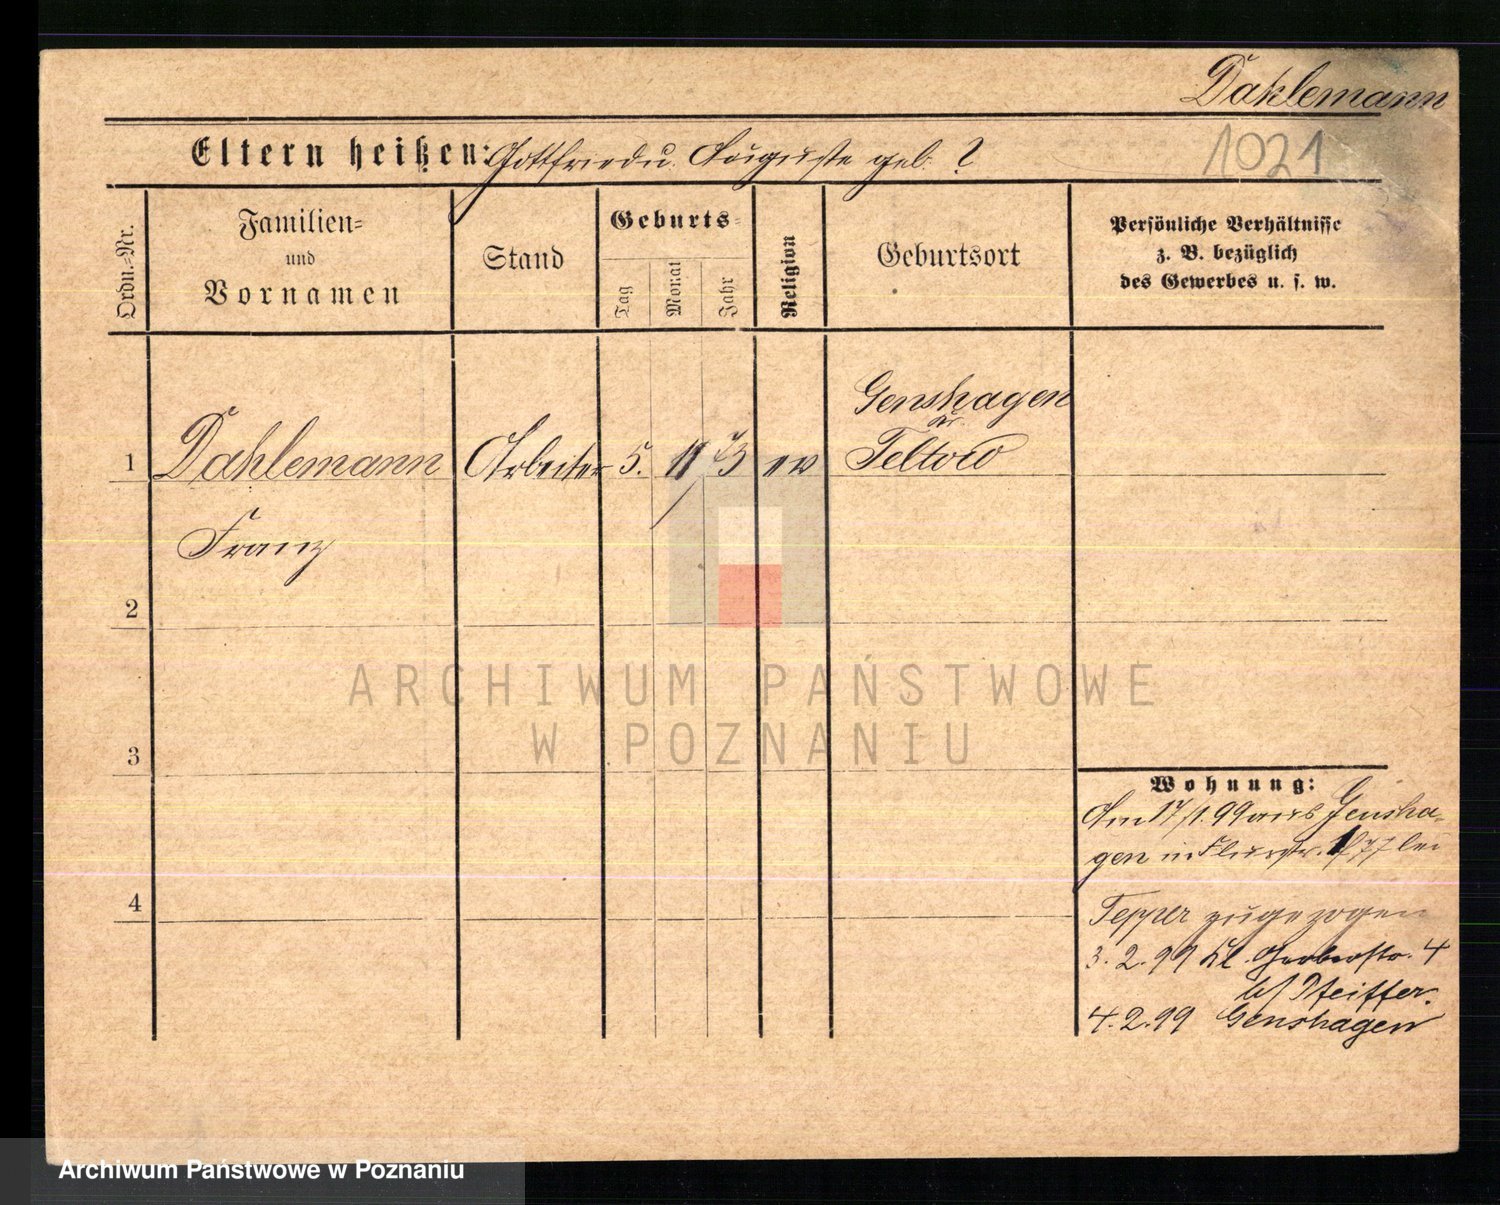 Dahlemann
1021
Eltern heißen: Gottfried u. Auguste geb. ?
Ordn.=Nr.
Familien=
und
Vornamen
Stand
Geburts=
Tag
Monat
Jahr
Religion
Geburtsort
Persönliche Verhältnisse
z. B. bezüglich
des Gewerbes u. s. w.
Genshagen
1 Dahlemann Arbeiter 5. 11 73 ev Teltow
Franz
2
3
4
ARCHIWUM PAŃSTWOWE
W POZNANIU
Wohnung:
Am 17/1. 99 aus Gensha-
gen in Flurstr. bei
Tepper zugezogen
3. 2. 99 Kl. Gerberstr. 4
b/ Pfeiffer.
4. 2. 99 Genshagen
Archiwum Państwowe w Poznaniu